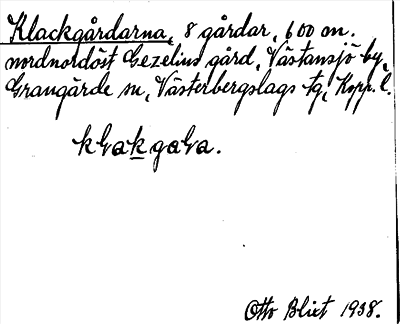 Klackgårdarna, 8 gårdar, 600 m.
nordnordöst Gezelius gård, Västansjö by,
Grangärde sn, Västerbergslags tg, Kopp. l.
klakgaɷa.
Otto Blixt 1938.